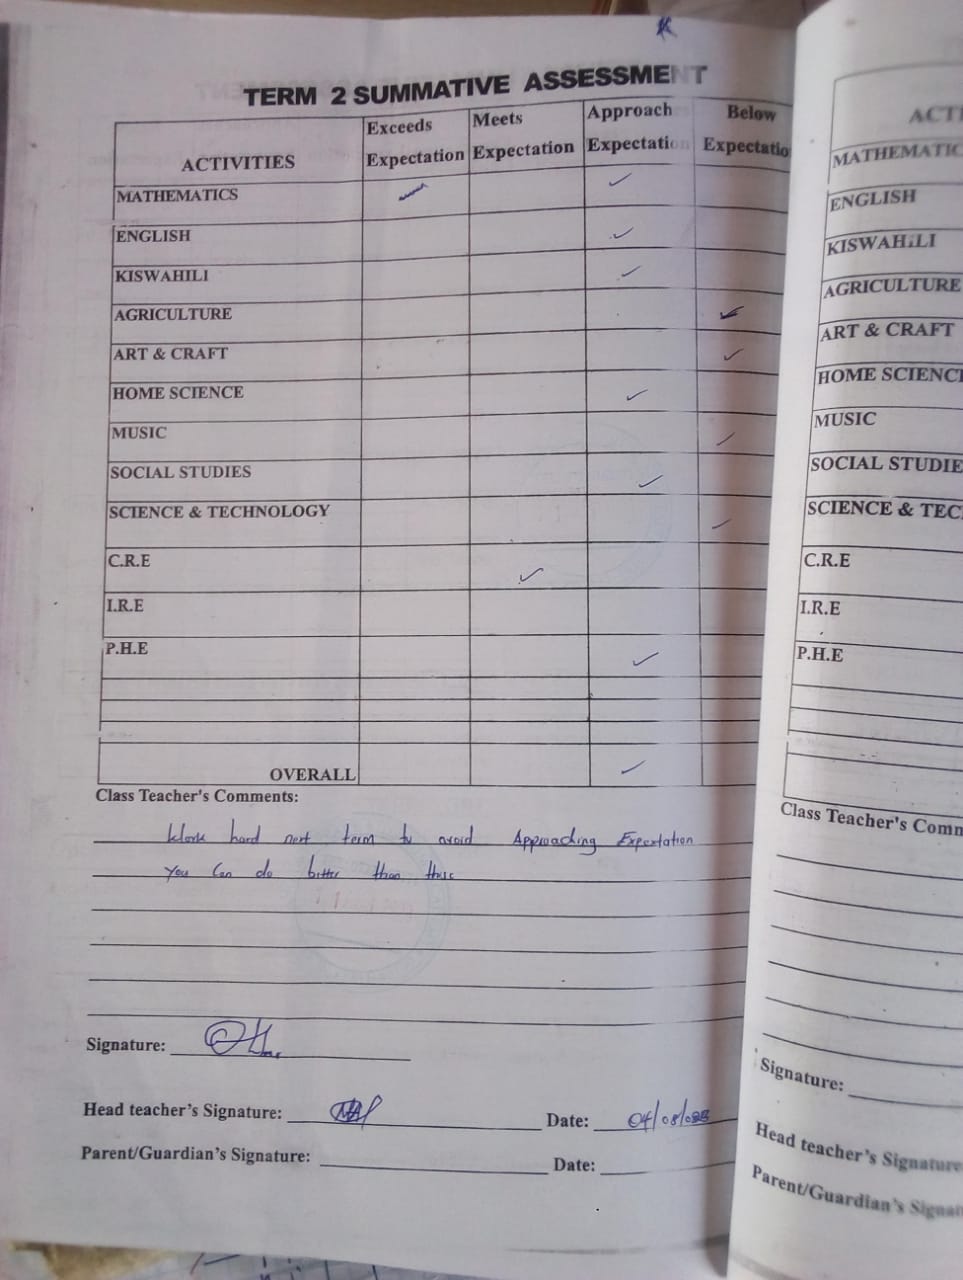 TERM 2 SUMMATIVE ASSESSMENT
ACTIVITIES Exceeds Expectation Meets Expectation Approach Expectati Below Expectatio
MATHEMATICS ✓ ✓
ENGLISH ✓
KISWAHILI ✓
AGRICULTURE ✓
ART & CRAFT ✓
HOME SCIENCE ✓
MUSIC ✓
SOCIAL STUDIES ✓
SCIENCE & TECHNOLOGY ✓
C.R.E ✓
I.R.E
P.H.E ✓
OVERALL ✓
Class Teacher's Comments:
Work hard next term to avoid Approaching Expectation
You Can do better than this
Signature:
Head teacher's Signature: Date: 04/08/
Parent/Guardian's Signature: Date:
ACTI
MATHEMATIC
ENGLISH
KISWAHILI
AGRICULTURE
ART & CRAFT
HOME SCIENCE
MUSIC
SOCIAL STUDIE
SCIENCE & TEC
C.R.E
I.R.E
P.H.E
Class Teacher's Comm
Signature:
Head teacher's Signature
Parent/Guardian's Signat